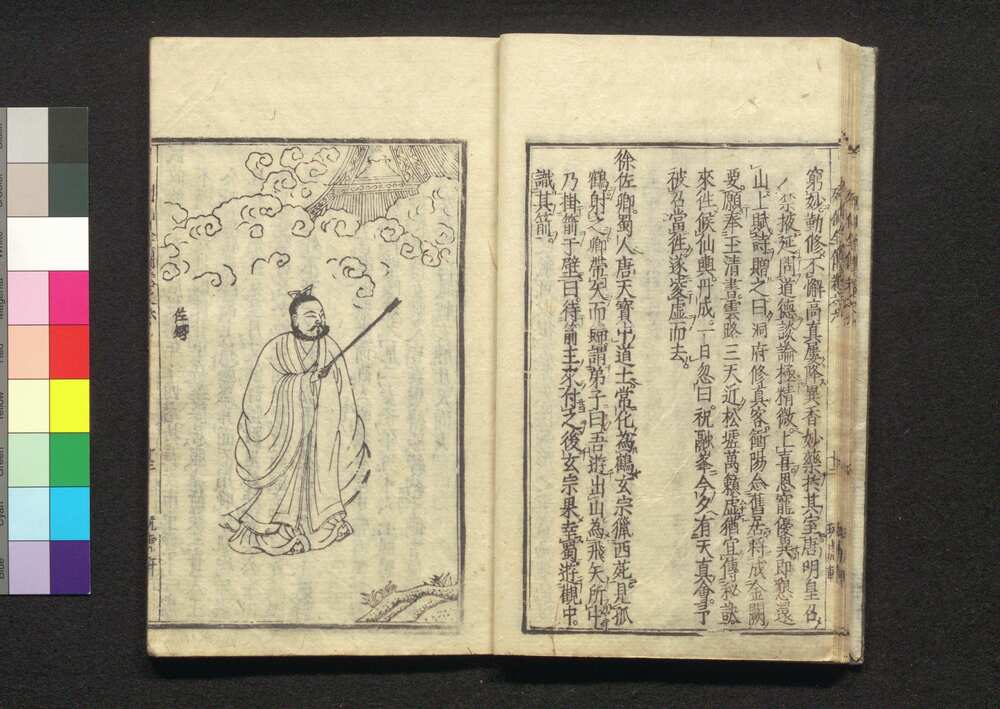 窮妙勤修不懈高真屢降異香妙藥共其室唐明皇召
入禁掖延問道德談論極精微上喜恩寵優異即懇還
山上賦詩贈之曰洞府修真客衡陽念舊居將成金闕
要願奉玉清書雲路三天近松壑萬籟虛猶宜傳秘訣
來往候仙輿丹成一日忽曰祝融峯今夕有天真會予
被召當往遂凌虛而去
徐佐卿蜀人唐天寶中道士常化為鶴玄宗獵西苑見孤
鶴射之卿帶矢而歸謂弟子曰吾遊出山為飛矢所中
乃掛箭于壁曰待箭主來付之後玄宗果幸蜀遊觀中
識其箭
佐卿